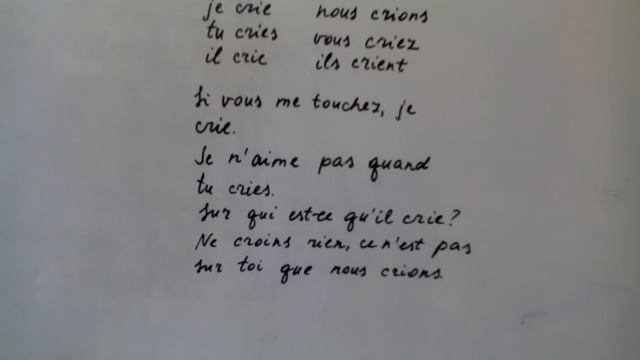 je crie nous crions
tu cries vous criez
il crie ils crient
Si vous me touchez, je
crie.
Je n'aime pas quand
tu cries.
Sur qui est-ce qu'il crie?
Ne croins rien, ce n'est pas
sur toi que nous crions.